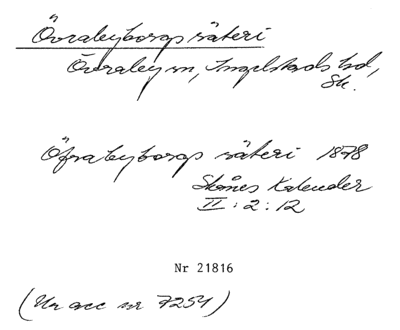 Övrabyborgs säteri
Övraby sn, Ingelstads hd,
Sk.
Öfrabyborgs säteri 1878
Skånes Kalender
II : 2 : 12
Nr 21816
(Ur acc nr 7254)